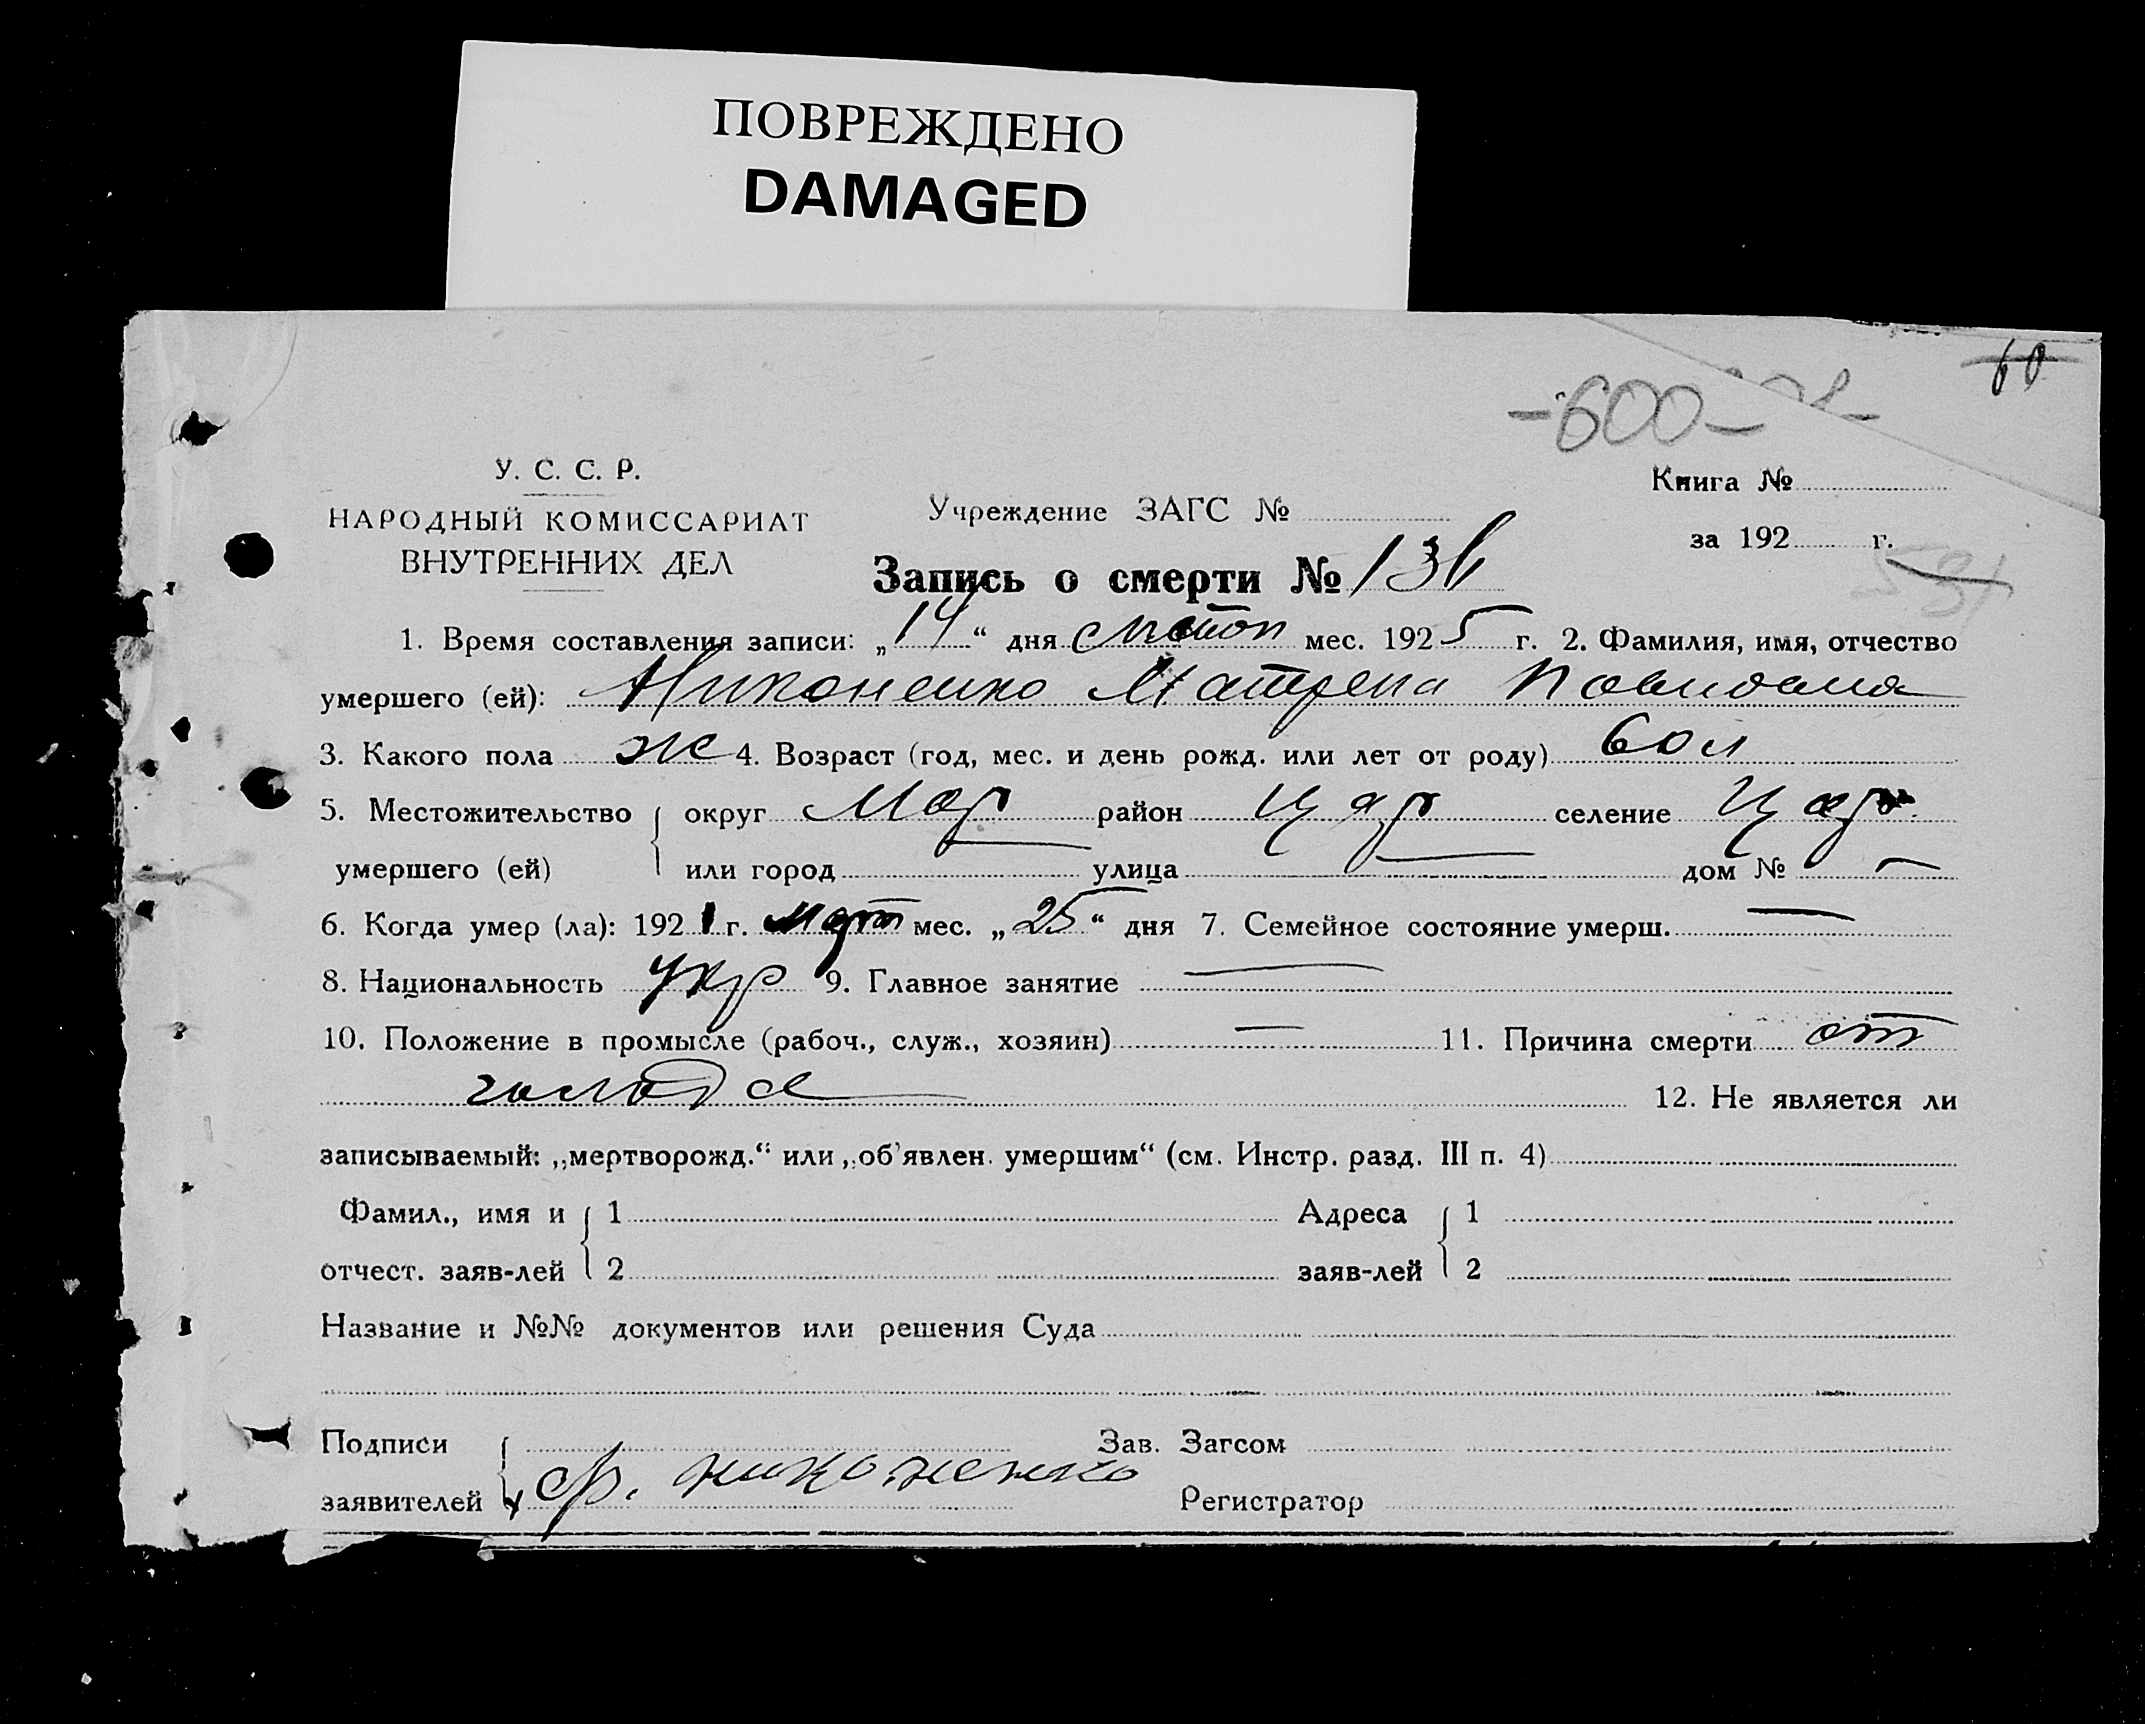 ПОВРЕЖДЕНО
DAMAGED
60
-600-
У. С. С. Р.
НАРОДНЫЙ КОМИССАРИАТ
ВНУТРЕННИХ ДЕЛ
Учреждение ЗАГС №
Книга №
за 192 г.
531
Запись о смерти № 136
1. Время составления записи: „14“ дня мес. 1925 г. 2. Фамилия, имя, отчество
умершего (ей): Никоненко Матрена
3. Какого пола ж 4. Возраст (год, мес. и день рожд. или лет от роду) 60 л
5. Местожительство округ Мар район Цар селение Цар
умершего (ей) или город улица дом № —
6. Когда умер (ла): 1921 г. март мес. „25“ дня 7. Семейное состояние умерш. —
8. Национальность укр 9. Главное занятие —
10. Положение в промысле (рабоч., служ., хозяин) — 11. Причина смерти от
голода 12. Не является ли
записываемый: „мертворожд.“ или „об'явлен. умершим“ (см. Инстр. разд. III п. 4)
Фамил., имя и 1 Адреса 1
отчест. заяв-лей 2 заяв-лей 2
Название и №№ документов или решения Суда
Подписи Зав. Загсом
заявителей Ф. Никоненко Регистратор